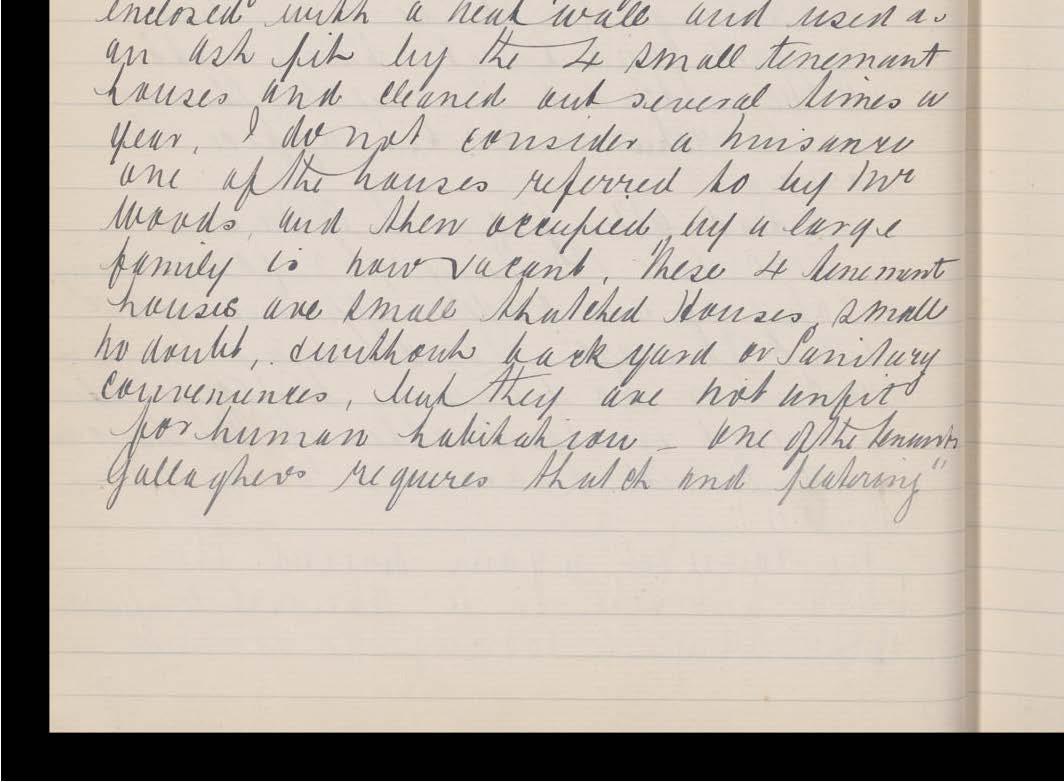 enclosed with a neat wall and used as
an ash pit by the 4 small tenemant
houses and cleaned out several times a
year, I do not consider a nuisance
one of the houses referred to by Mr
Woods, and then occupied by a large
family is now vacant, "These 4 tenement
houses are small thatched Houses, small
no doubt, without back yard or Sanitary
conveniences, but they are not unfit
for human habitation - one of the tenants
Gallaghers requres thatch and platering"